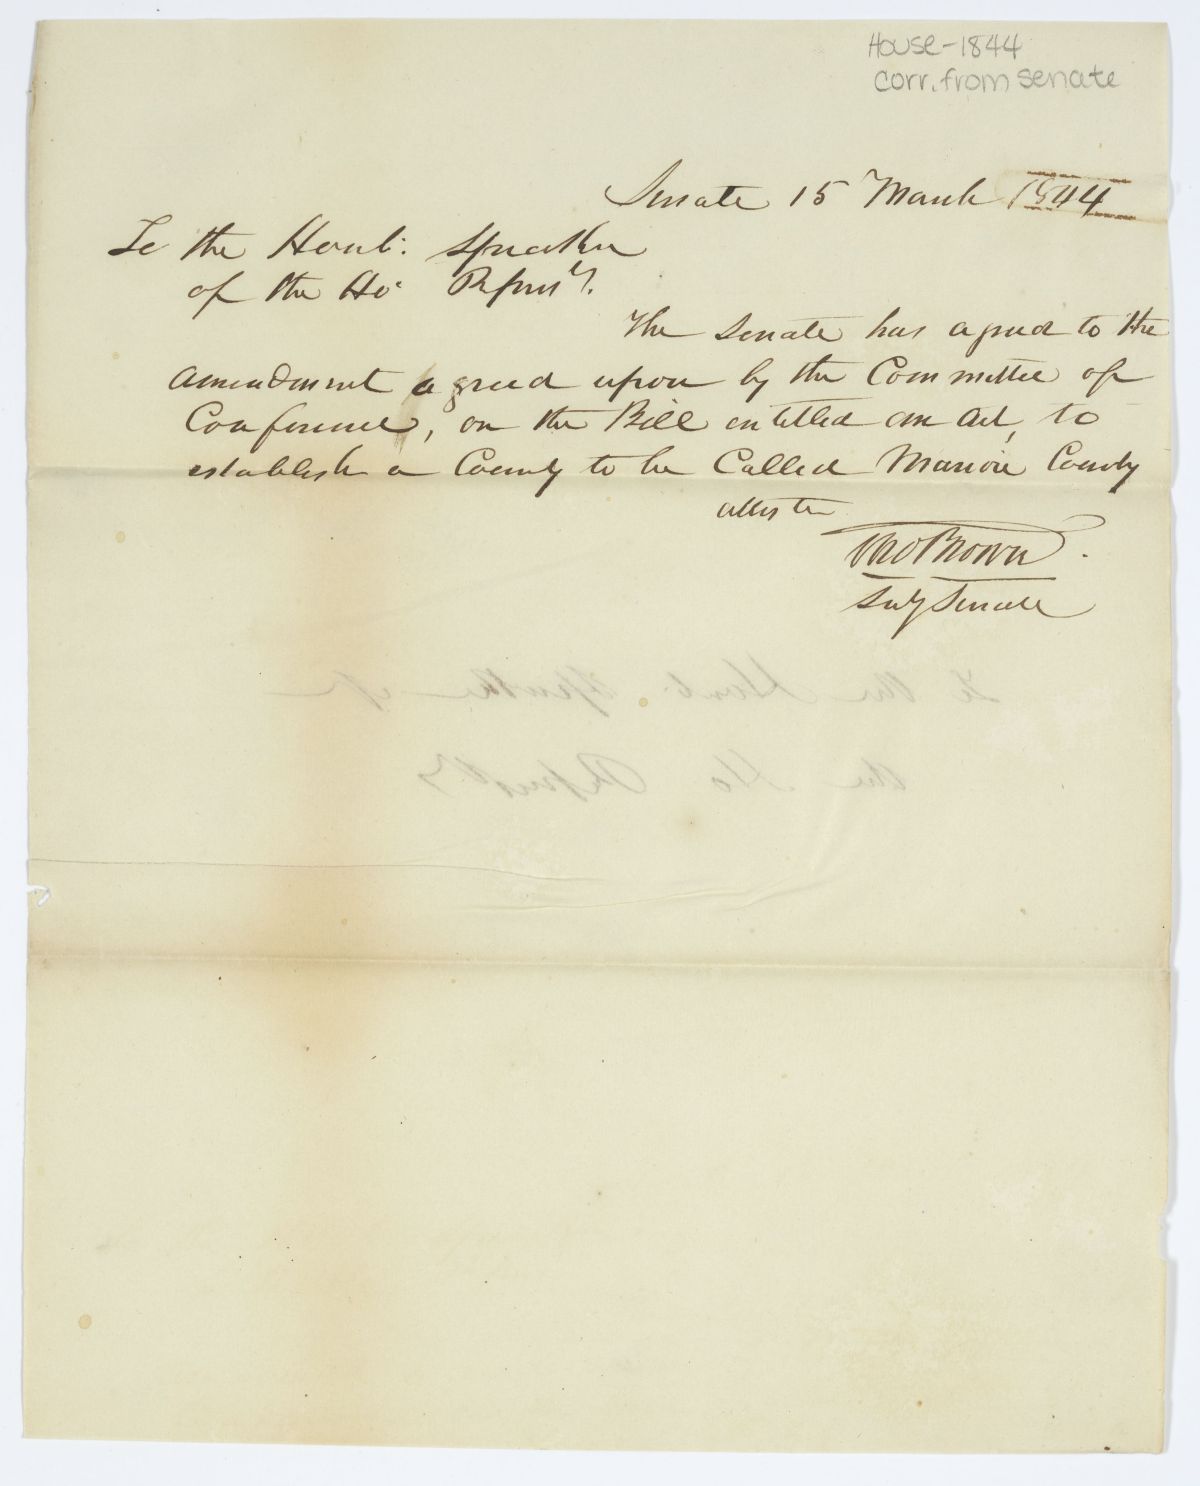 House-1844
Corr. from Senate
Senate 15 March 1844
To the Honb: Speaker
of the Ho: Represts.
The Senate has agreed to the
amendment agreed upon by the Committee of
Conference, on the Bill entitled an Act, to
establish a County to be Called Marion County
attester
Tho Brown
Secy Senate
To the Honb. Speaker of
the Ho